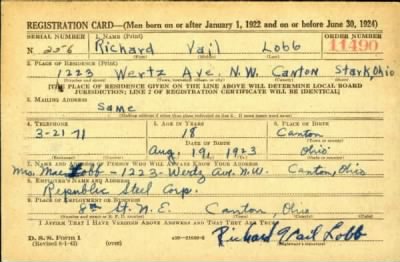 REGISTRATION CARD—(Men born on or after January 1, 1922 and on or before June 30, 1924)
SERIAL NUMBER 1. NAME (Print) ORDER NUMBER
N 256 Richard Vail Lobb 11490
2. PLACE OF RESIDENCE (Print)
1223 Wertz Ave. N.W. Canton Stark Ohio
[THE PLACE OF RESIDENCE GIVEN ON THE LINE ABOVE WILL DETERMINE LOCAL BOARD
JURISDICTION; LINE 2 OF REGISTRATION CERTIFICATE WILL BE IDENTICAL]
3. MAILING ADDRESS
Same
4. TELEPHONE 5. AGE IN YEARS 6. PLACE OF BIRTH
3-2171 18 Canton
DATE OF BIRTH
Aug. 19, 1923 Ohio
7. NAME AND ADDRESS OF PERSON WHO WILL ALWAYS KNOW YOUR ADDRESS
Mrs. Mae Lobb - 1223 - Wertz Ave. N.W. Canton, Ohio
8. EMPLOYER'S NAME AND ADDRESS
Republic Steel Corp.
9. PLACE OF EMPLOYMENT OR BUSINESS
8th St. N.E. Canton, Ohio
I AFFIRM THAT I HAVE VERIFIED ABOVE ANSWERS AND THAT THEY ARE TRUE.
D. S. S. FORM 1
(Revised 6-1-42) (over)
Richard Vail Lobb